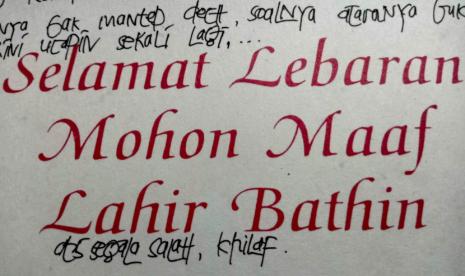 nya Gak mantep dech, soalNya acaraNya Guk
ini ucapin sekali lagi, ...
Selamat Lebaran
Mohon Maaf
Lahir Bathin
ats segala salah, khilaf.